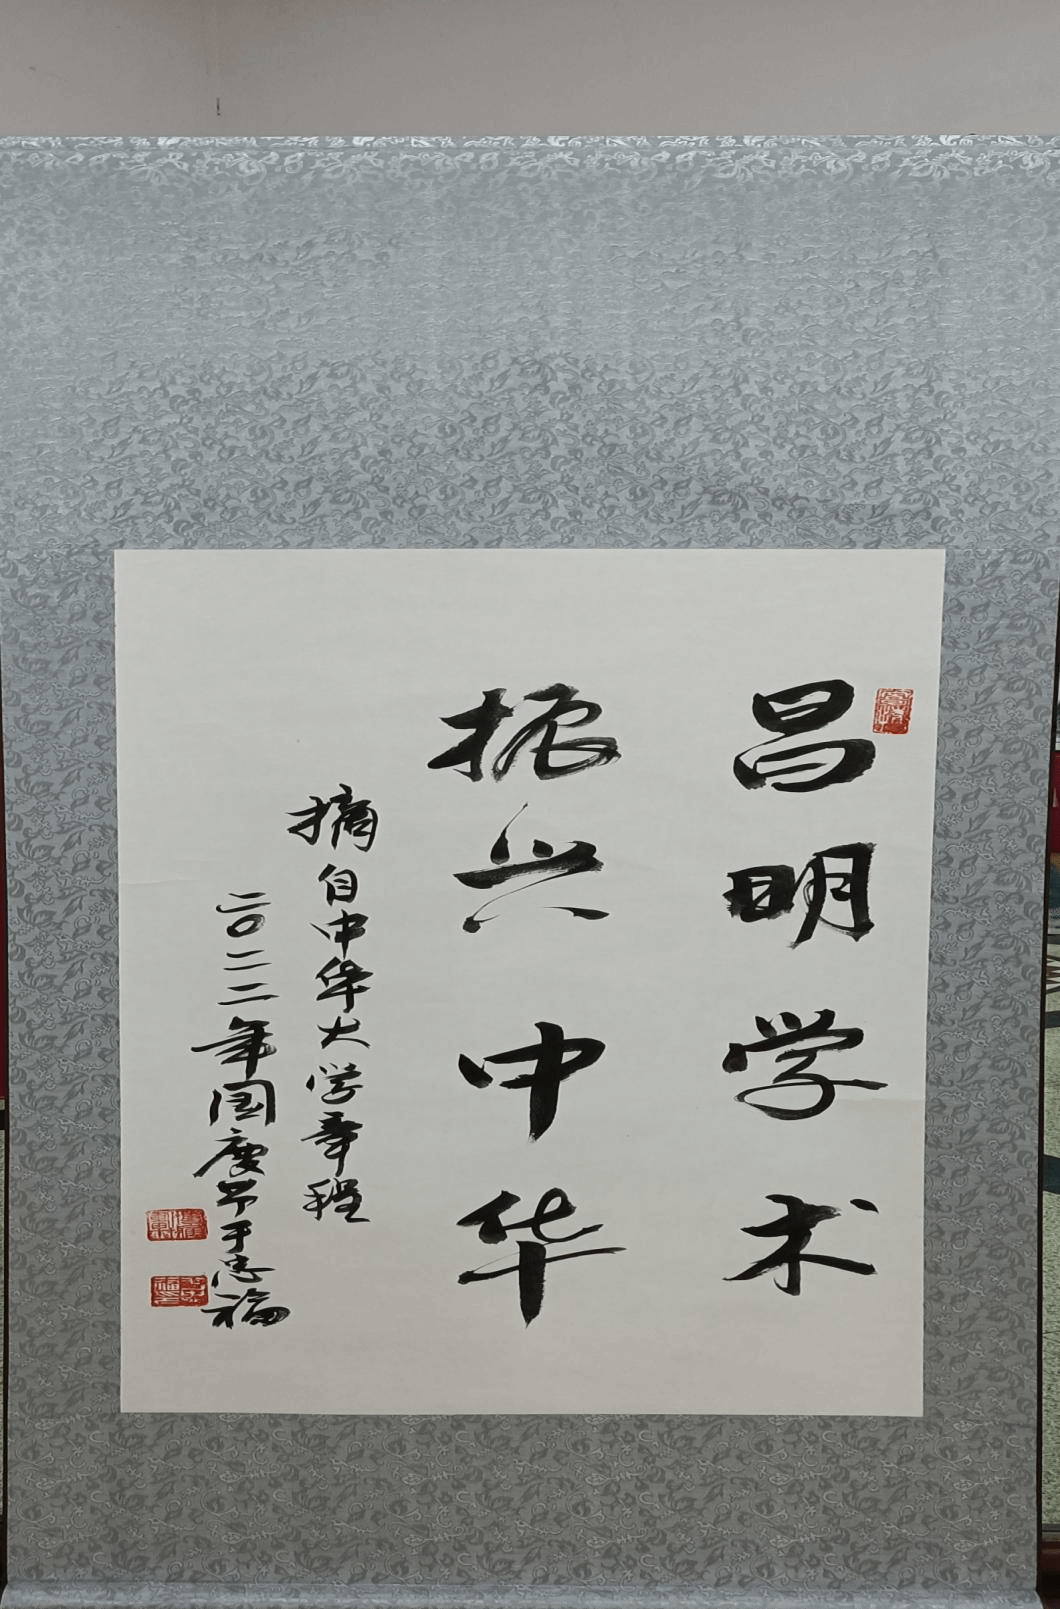 昌明学术
振兴中华
摘自中华大学章程
二〇二二年国庆节于忠福